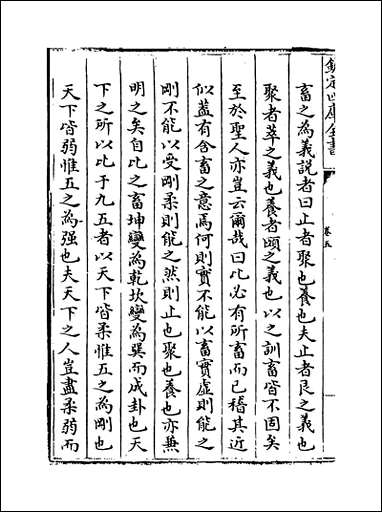 欽定四庫全書
卷五
畜之為義説者曰止者聚也養也夫止者艮之義也
聚者萃之義也養者頤之義也以之訓畜皆不固矣
至於聖人亦豈云爾哉曰比必有所畜而已稽其近
似蓋有含畜之意焉何則實不能以畜實虛則能之
剛不能以受剛柔則能之然則止也聚也養也亦兼
明之矣自比之畜坤變為乾坎變為巽而成卦也天
下之所以比于九五者以天下皆柔惟五之為剛也
天下皆弱惟五之為强也夫天下之人豈盡柔弱而